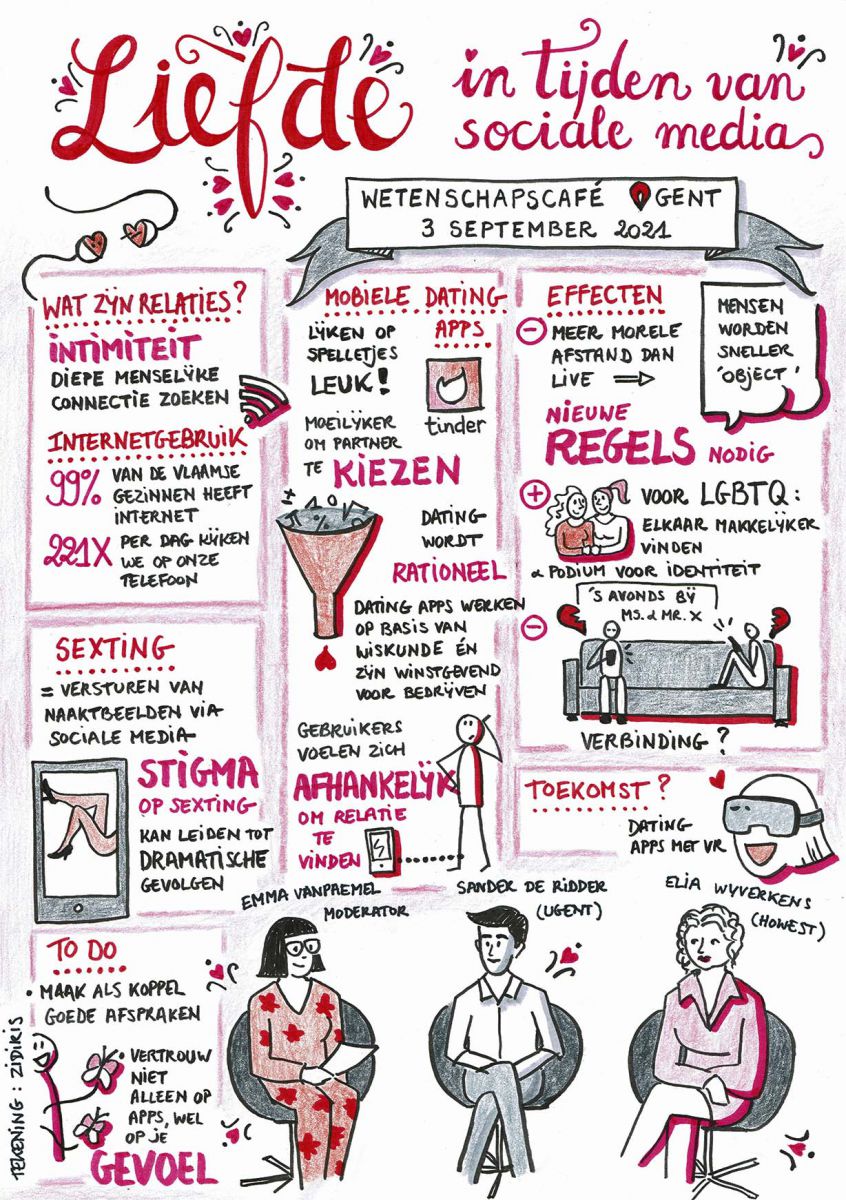 Liefde
in tijden van
sociale media
WETENSCHAPSCAFÉ GENT
3 SEPTEMBER 2021
WAT ZIJN RELATIES?
INTIMITEIT
DIEPE MENSELIJKE
CONNECTIE ZOEKEN
INTERNETGEBRUIK
99% VAN DE VLAAMSE
GEZINNEN HEEFT
INTERNET
221X PER DAG KIJKEN
WE OP ONZE
TELEFOON
SEXTING
= VERSTUREN VAN
NAAKTBEELDEN VIA
SOCIALE MEDIA
STIGMA
OP SEXTING
KAN LEIDEN TOT
DRAMATISCHE
GEVOLGEN
MOBIELE DATING
APPS
LIJKEN OP
SPELLETJES
LEUK!
tinder
MOEILIJKER
OM PARTNER
TE KIEZEN
DATING
WORDT
RATIONEEL
DATING APPS WERKEN
OP BASIS VAN
WISKUNDE ÉN
ZIJN WINSTGEVEND
VOOR BEDRIJVEN
GEBRUIKERS
VOELEN ZICH
AFHANKELIJK
OM RELATIE
TE
VINDEN
EFFECTEN
- MEER MORELE
AFSTAND DAN
LIVE ⇒
MENSEN
WORDEN
SNELLER
'OBJECT'
NIEUWE
REGELS NODIG
+ VOOR LGBTQ:
ELKAAR MAKKELIJKER
VINDEN
& PODIUM VOOR IDENTITEIT
-
'S AVONDS BIJ
MS. & MR. X
VERBINDING?
TOEKOMST?
DATING
APPS MET VR
TO DO
• MAAK ALS KOPPEL
GOEDE AFSPRAKEN
• VERTROUW
NIET
ALLEEN OP
APPS, WEL
OP JE
GEVOEL
EMMA VANPAEMEL
MODERATOR
SANDER DE RIDDER
(UGENT)
ELIA WYVERKENS
(HOWEST)
TEKENING: ZIDIRIS